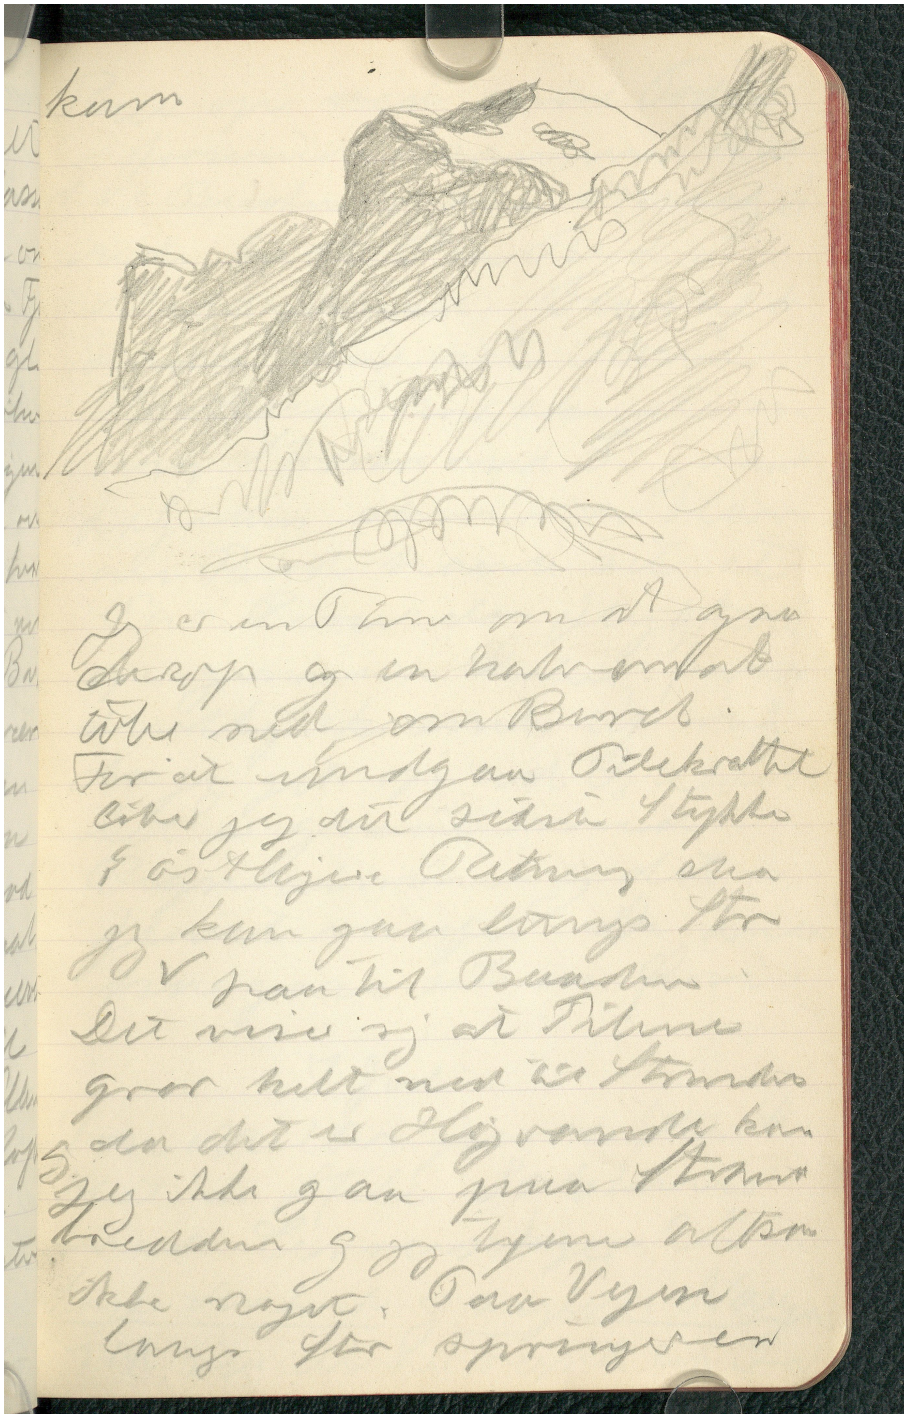 kam
Jeg er en Time om at gaa
derop og en halv om at
løbe ned, om Bord.
For at undgaa Pilekrattet
løber jeg det sidste Stykke
i østligere Retning saa
jeg kan gaa langs Str
paa til Baaden.
Det viser sig at Pilene
gror helt ned til Stranden
og da det er Højvande kan
jeg ikke gaa paa Stran
bredden og jeg tjener altsaa
ikke noget. Paa Vejen
langs Str springer en